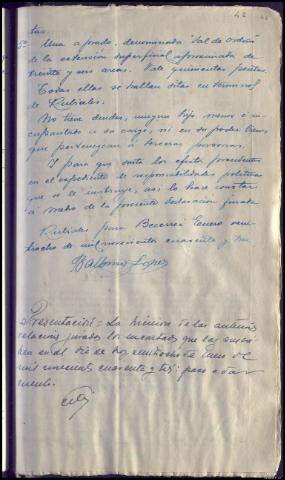 42
tas.
5º Una a prado, denominada "Val de
de la extensión superficial aproximada de
treinta y seis areas. Vale quinientas pesetas
Todas ellas se hallan sitas en término
de
No tiene deudas, ningun hijo menor ó in-
capacitado a su cargo, ni en su poder bienes
que pertenezcan á terceras personas.
Y para que surta los efectos procedentes
en el expediente de responsabilidades políticas
que se le instruye, asi lo hace constar
á medio de la presente declaracion jurada
para Becerreá Enero vein-
tiocho de mil novecientos cuarenta y
López
Presentación = La hicieron de las anteriores
relaciones juradas los encartados que las suscri-
ben en el dia de hoy veintiocho de Enero de
mil novecientos cuarenta y
mente.